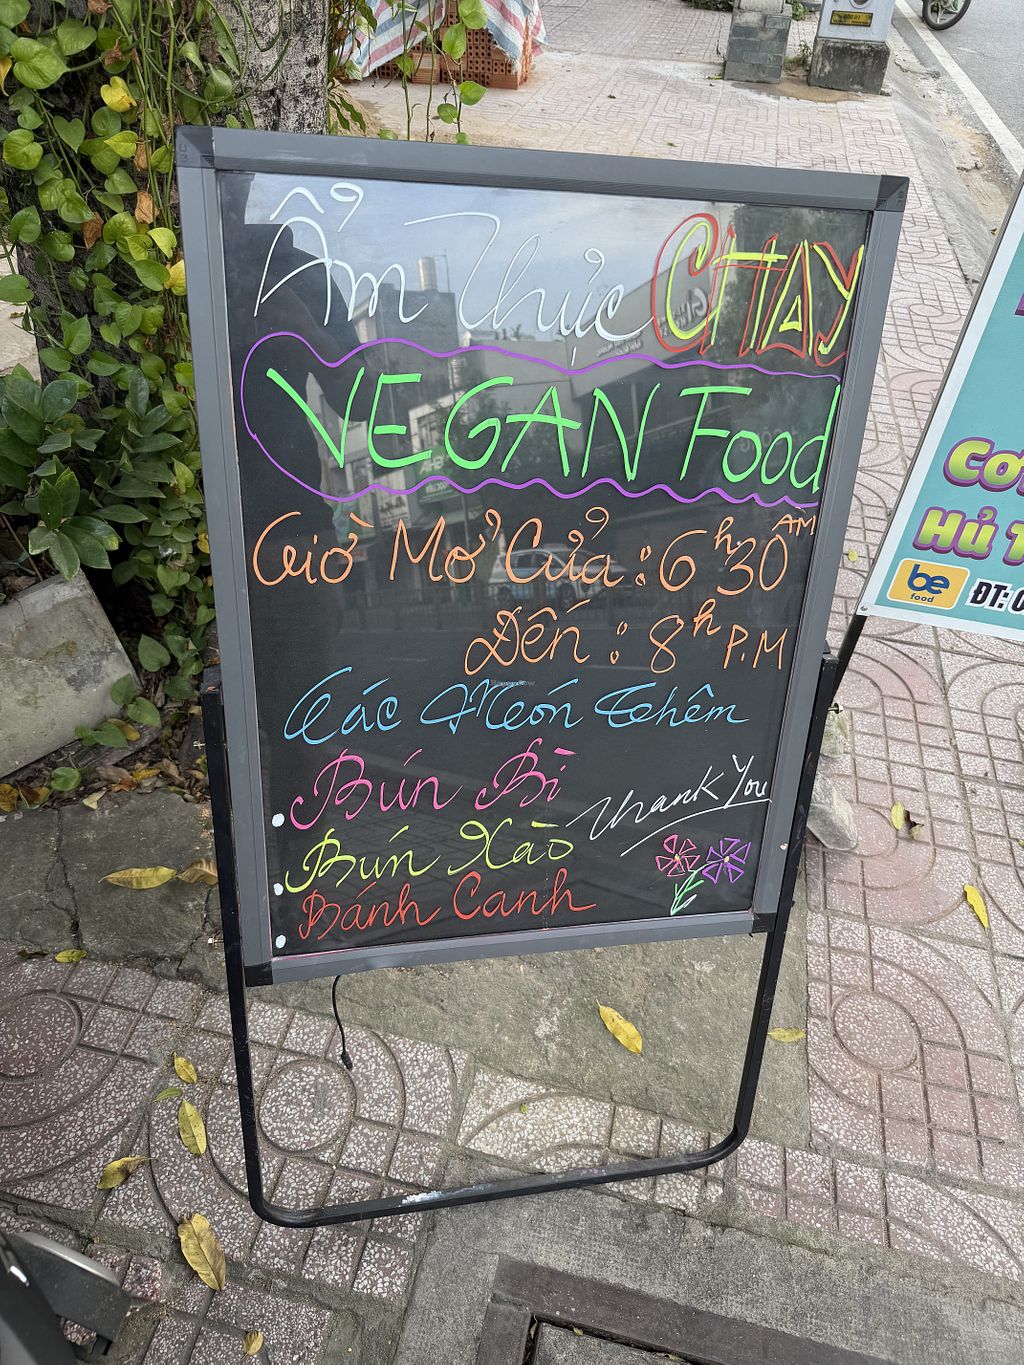 Ẩm Thực CHAY
VEGAN Food
Giờ Mở Cửa : 6h30 AM
Đến : 8h P.M
Các Món Thêm
Bún Bì
Thank You
Bún Xào
Bánh Canh
be
food
ĐT: 0
Hủ
HappyCow